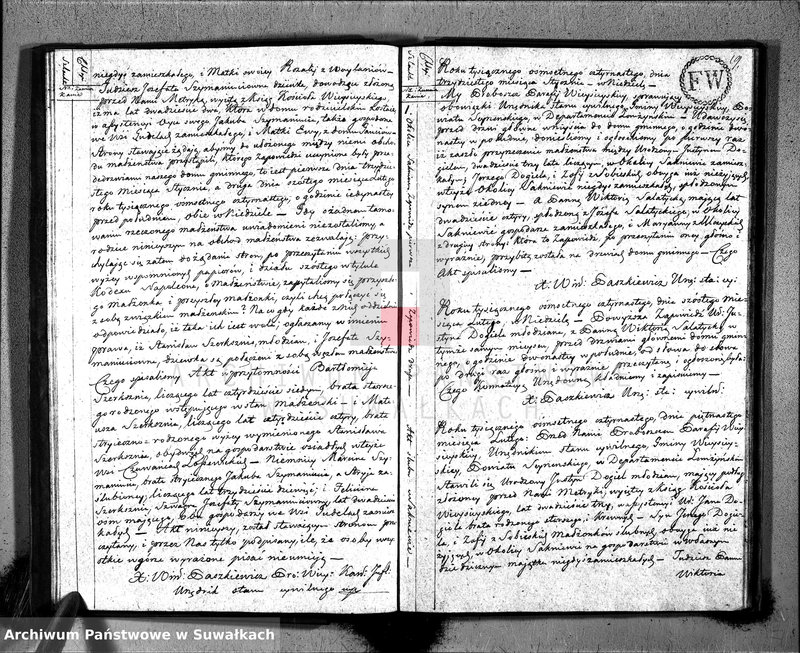 niegdyś zamieszkałego, i Matki owéy Rozalij z Woytaniów —
Tudzież Jozefata Szymaniuwna dziewka, dowodząc złożoną
przed Nami Metryką wyiętą z Ksiąg Kościoła Wieysieyskiego,
iż ma lat dwadzieścia dwa, która w domu rodzicielskim zostaie
w assystencyi Oyca swego Jakuba Szymaniuka, także gospodarza
we Wsi Judelach zamieszkałego, i Matki Ewy, z domu
Strony stawaiące żądaią, abyśmy do ułożonego między niemi obcho-
du małżeństwa przystąpili, którego zapowiedzi uczynione były przed
drzwiami naszego domu gminnego, to iest pierwsza dnia trzydzie-
stego Miesiąca Stycznia, a druga dnia szóstego miesiąca Lutego
roku tysiącznego ośmsetnego czternastego, o godzinie iedynastéy
przed południem, obie w Niedziele — Gdy o żadnem tamo-
waniu rzeczonego małżeństwa uwiadomieni niezostaliśmy, a
rodzice ninieyszym na obchód małżeństwa zezwalaią: przy-
chylaiąc się zatem do żądania stron, po przeczytaniu wszystkich
wyżéy wspomnionych papierów, i działu szóstego w tytule
Kodexu Napoleona, o małżeństwie, zapytaliśmy się przyszłe-
go małżonka i przyszłéy małżonki, czyli chcą połączyć się
z sobą związkiem małżeńskim? Na co gdy każde z nich oddzielnie
odpowiedziało, iż taka ich iest wola, ogłaszamy w imieniu
prawa, iż Stanisław Szorksznis, młodzian, i Jozefata Szy-
maniuwna, dziewka są połączeni z sobą węzłem małżeństwa
Czego spisaliśmy Akt w przytomności Bartłomieja
Szorksznia, liczącego lat czterdzieście siedym, brata starsze-
go rodzonego wstępuiącego w stan małżeński — i Mate-
usza Szorksznia, liczącego lat czterdzieście cztery, brata
stryieczno-rodzonego wyżéy wymienionego Stanisława
Szorksznia, obydwóch na gospodarstwie osiadłych w téyże
Wsi — Niemniéy Marcina Szy-
maniuka, brata stryiecznego Jakuba Szymaniuka, a Stryia za-
ślubionéy, liczącego lat trzydzieście dziewięć; i Felixa
Szorksznia, Szwagra Jozefaty Szymaniuwny, lat dwadzieścia
ośm maiącego. Oba gospodarzy we Wsi Judelach zamiesz-
kałych — Akt ninieyszy został stawaiącym stronom prze-
czytany, i przez Nas tylko podpisany, ile, że osoby wszy-
stkie w górze wyrażone pisać nieumieią —
X: Win: Daszkiewicz Pro: Wiey:
Urzędnik stanu cywilnego
19
FW
Roku tysiącznego ośmsetnego czternastego, dnia
trzydziestego miesiąca Stycznia — w Niedzielę —
My Proboszcz Parafij Wieysieyskiéy, sprawuiący
obowiązki Urzędnika Stanu cywilnego, Gminy Wieysieyskiéy, Po-
wiatu Seyneńskiego, w Departamencie Łomżyńskim — Udawszy się
przed drzwi główne wniyścia do domu gminnego, o godzinie dwu-
nastéy w południe, donieśliśmy i ogłosiliśmy po pierwszy raz,
iż zaszło przyrzeczenie małżeństwa między Urodzonym Justynem Do-
gielem, dwadzieście trzy lata liczącym, w Okolicy Sakniewie zamiesz-
kałym, Jerzego Dogiela, i Zofij z Sobieskich, obojga iuż nieżyjących,
w téyże Okolicy Sakniewie niegdyś zamieszkałych, spłodzonym
synem z iednéy — A Panną Wiktoryą Salatycką, maiącą lat
dwadzieście cztery, spłodzoną z Jozefa Salatyckiego, w Okolicy
Sakniewie gospodarza zamieszkałego, i Maryanny z
z drugiéy strony. Która to Zapowiedź, po przeczytaniu onéy, głośno i
wyraźnie, przybitą została na drzwiach domu gminnego — Czego
Akt spisaliśmy —
X: Win: Daszkiewicz Urz: sta: cy:
Roku tysiącznego ośmsetnego czternastego, dnia szóstego mie-
siąca Lutego, w Niedzielę — Powyższa Zapowiedź Ur: Ju-
styna Dogiela młodziana, z Panną Wiktoryą Salatycką, w
tymże samym mieyscu, przed drzwiami głównemi domu gmin-
nego, o godzinie dwunastéy w południe, od słowa do słowa
po drugi raz głośno i wyraźnie przeczytaną i ogłoszoną była:
Czego Urzędowną kładziemy i zapisuiemy —
X: Daszkiewicz Urz: sta: cywiln:
Roku tysiącznego ośmsetnego czternastego, dnia piętnastego
miesiąca Lutego: Przed Nami Proboszczem Parafij Wiey-
sieyskiéy, Urzędnikiem Stanu cywilnego, Gminy Wieysiey-
skiéy, Powiatu Seyneńskiego, w Departamencie Łomżyńskim
Stawili się Urodzony Justyn Dogiel młodzian, maiący podług
złożonéy przed Nami Metryki, wyiętéy z Ksiąg Kościoła
Wieysieyskiego, lat dwadzieście trzy, w assystencyi Ur: Jana Do-
giela brata rodzonego starszego, i krewnych — Syn Jerzego Dogie-
la, i Zofij z Sobieskich Małżonków ślubnych, oboyga iuż nie
żyiących, w Okolicy Sakniewie na gospodarstwie w własnym
dziedzicznym maiątku niegdyś zamieszkałych — Tudzież Panna
Wiktorya
Archiwum Państwowe w Suwałkach